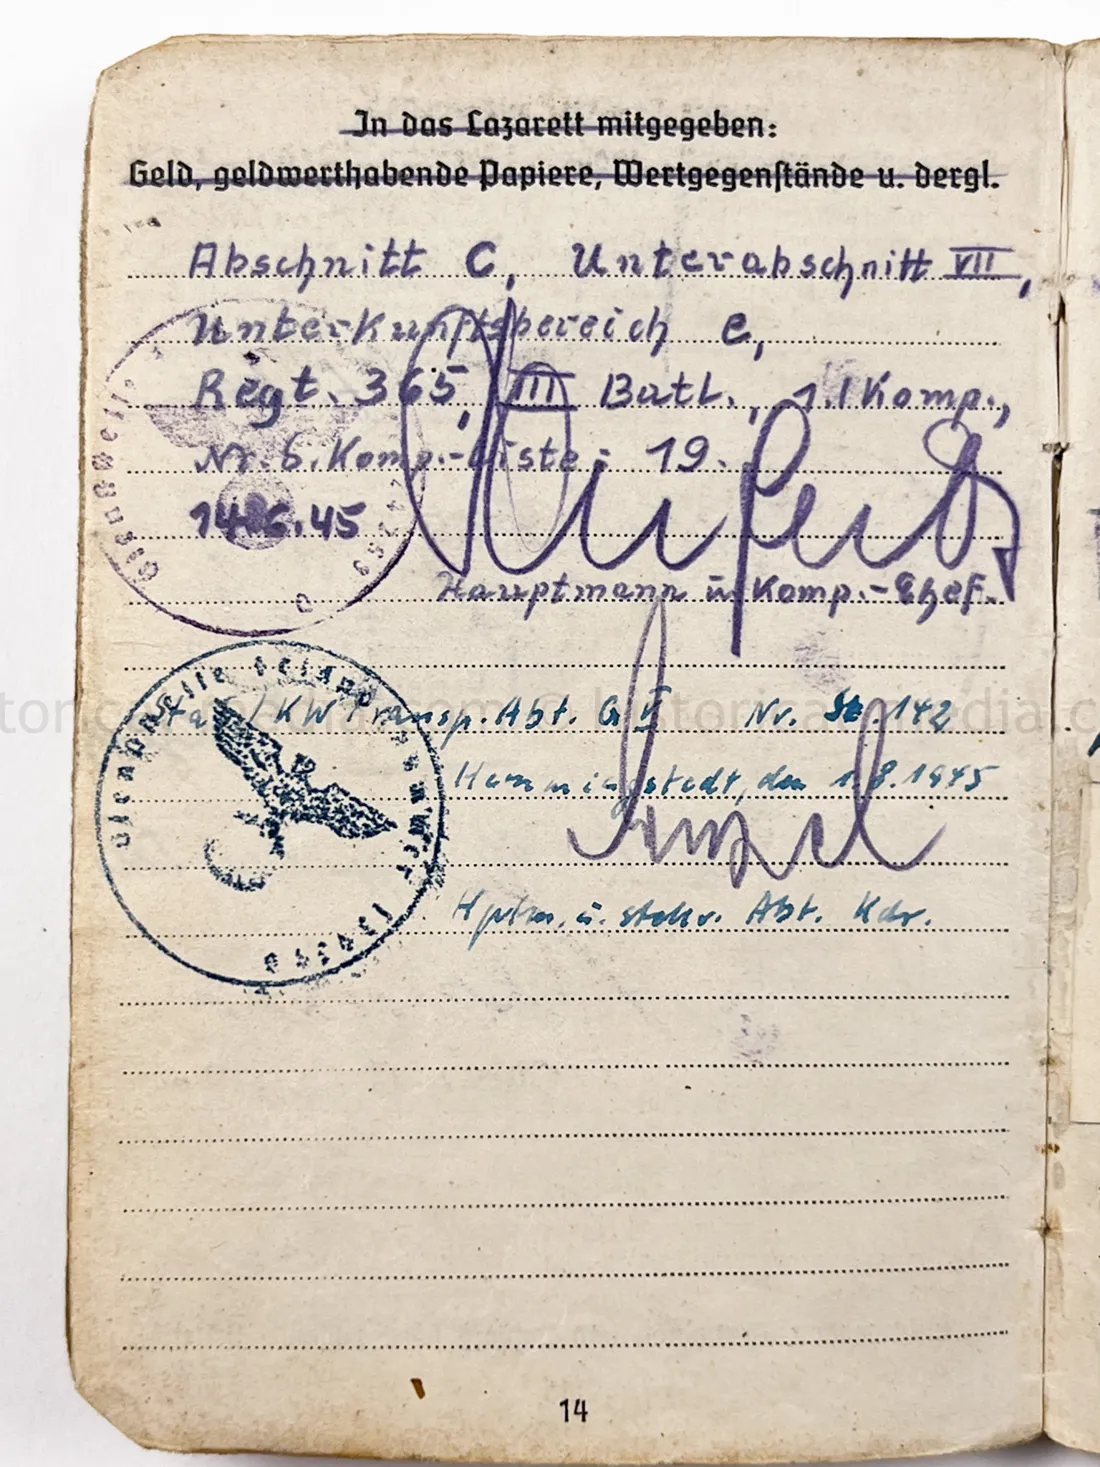 In das Lazarett mitgegeben:
Geld, geldwerthabende Papiere, Wertgegenstände u. dergl.
Abschnitt C, Unterabschnitt VII,
Unterkunftsbereich e,
Regt. 365, III Batl., 1. Komp.,
Nr. d. Komp.-Liste: 19.
14.6.45
Hauptmann u. Komp.-Chef.
Dienststelle
KW Transp. Abt. G V Nr. 142
Hemmingstedt, den 1.8.1945
Hptm. u. stellv. Abt. Kdr.
Dienststelle Feldpostnummer
14